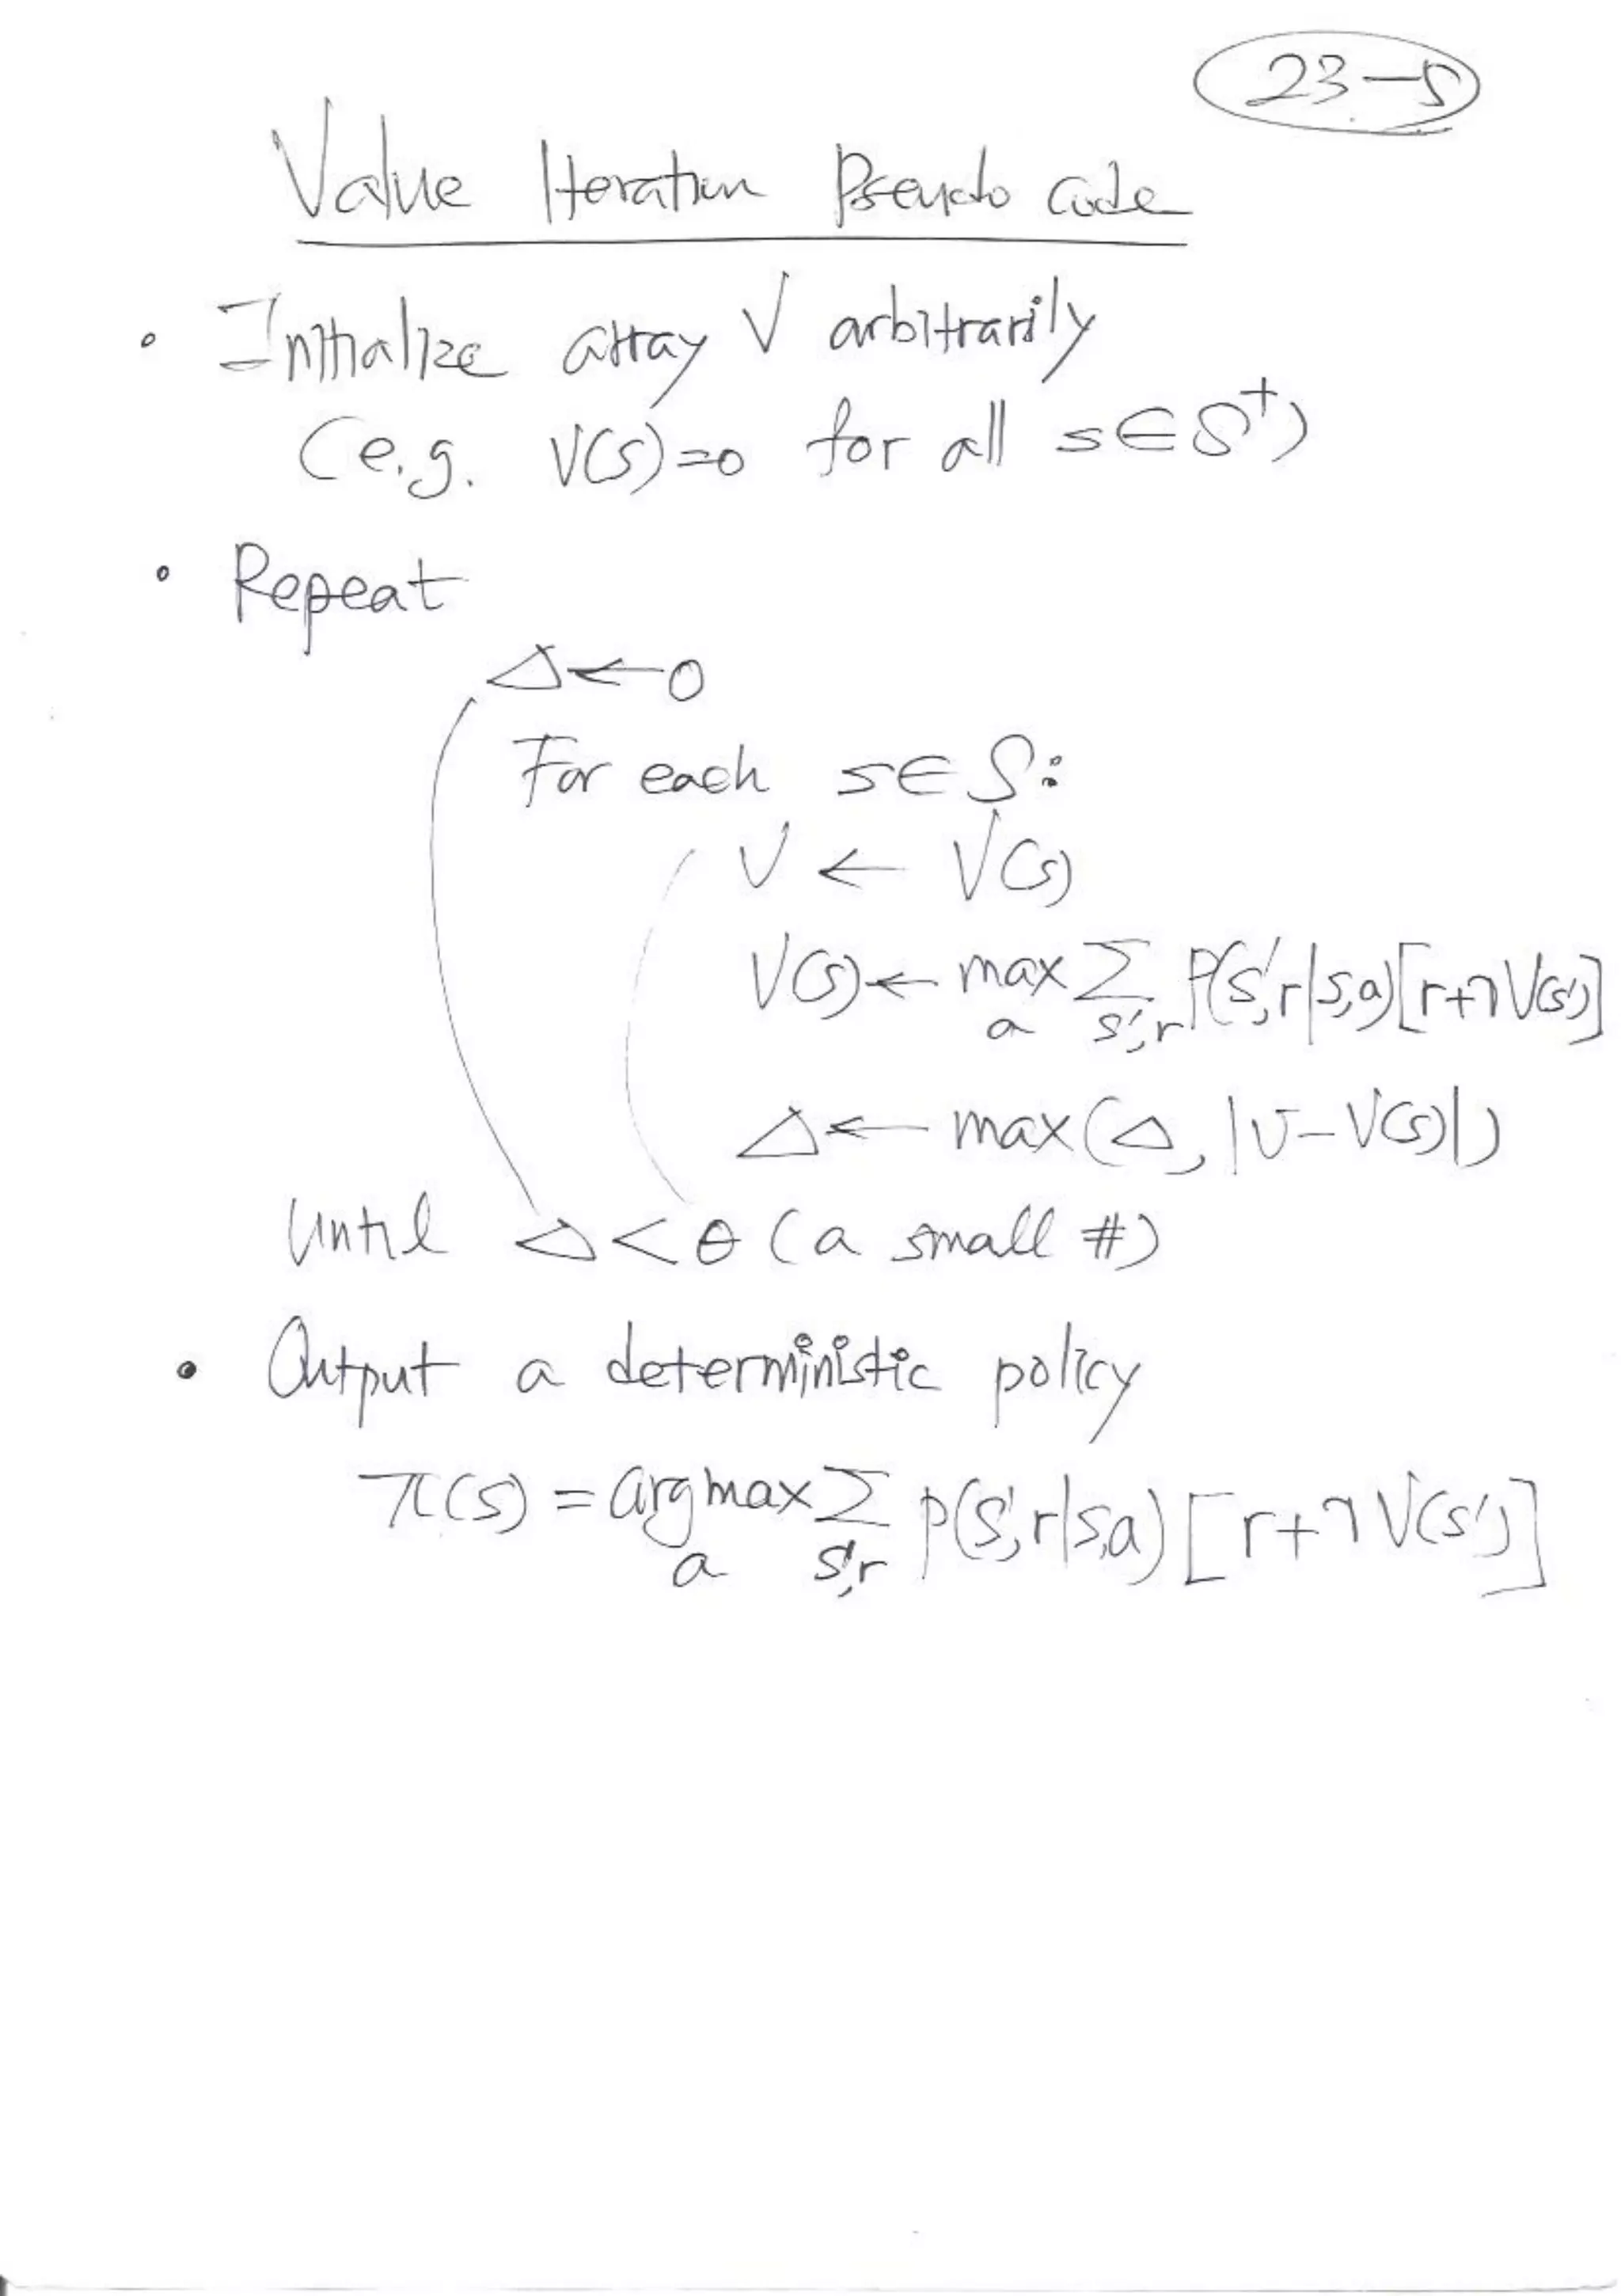 23-5
Value Iteration Pseudo code
• Initialize array V arbitrarily
(e.g. V(s)=0 for all s∈S⁺)
• Repeat
Δ←0
For each s∈S:
v ← V(s)
V(s)← max_a Σ_{s',r} P(s',r|s,a)[r+γV(s')]
Δ← max(Δ, |v-V(s)|)
Until Δ<θ (a small #)
• Output a deterministic policy
π(s) = argmax_a Σ_{s',r} p(s',r|s,a) [r+γV(s')]